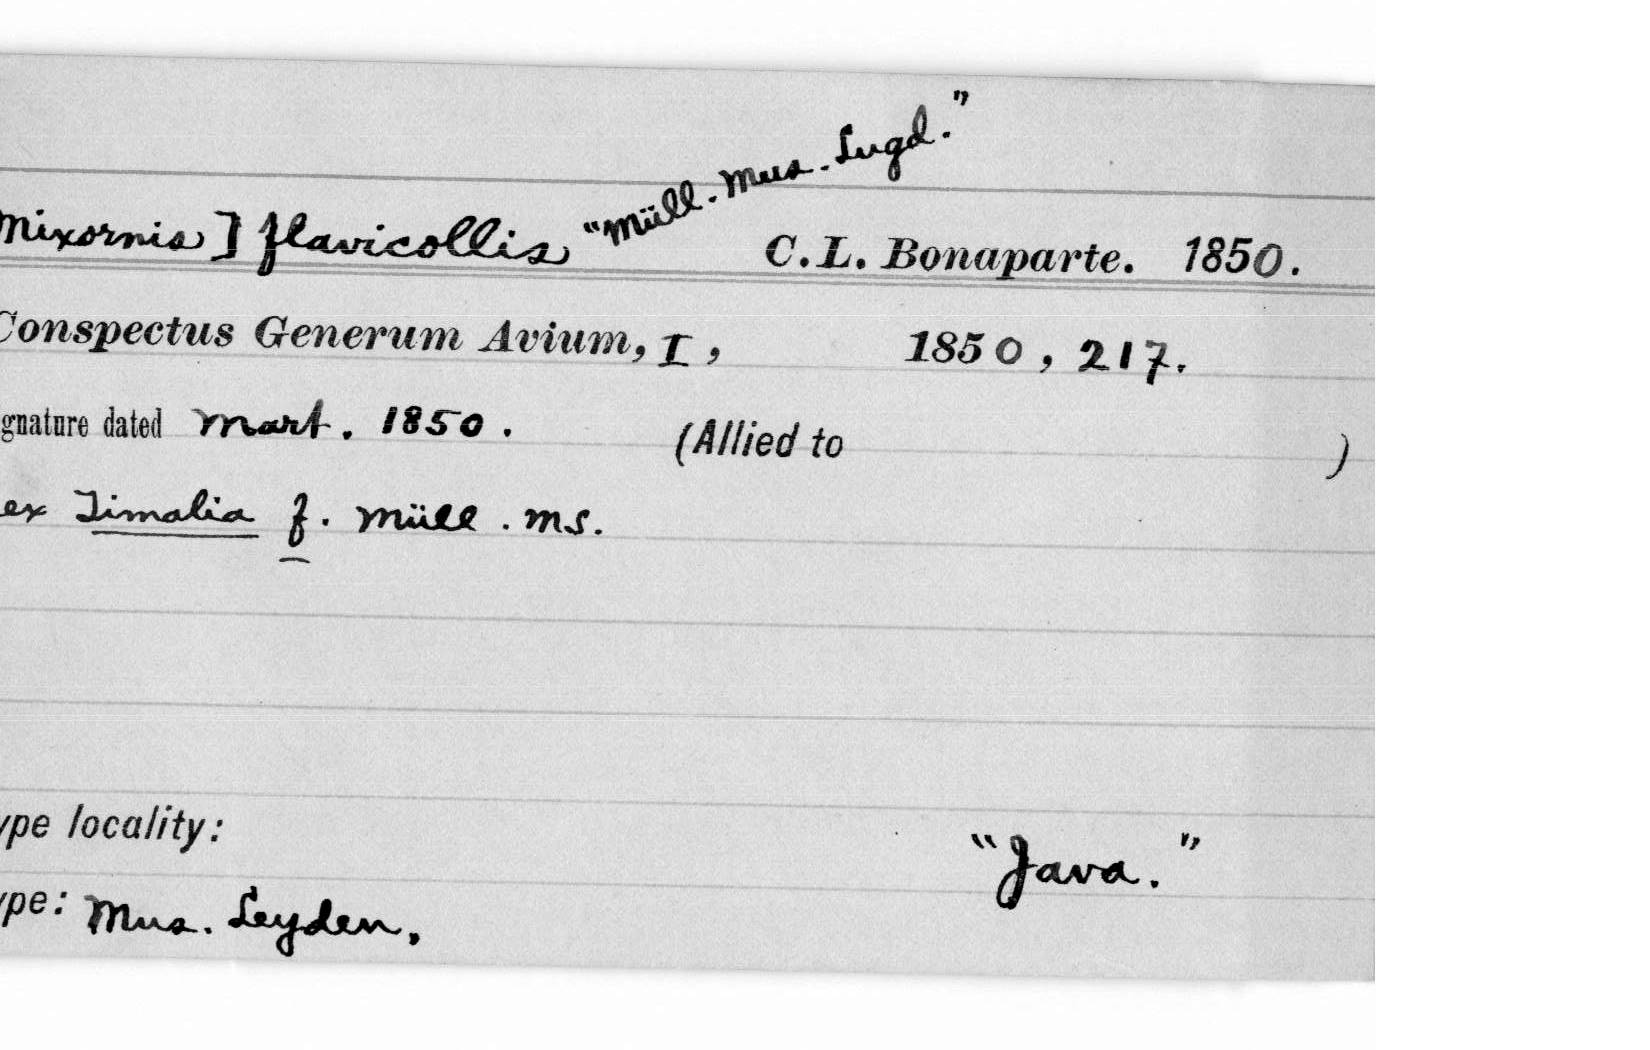 Mixornis] flavicollis "Müll. Mus. Lugd." C.L. Bonaparte. 1850.
Conspectus Generum Avium, I, 1850, 217.
gnature dated Mart. 1850. (Allied to )
ex Timalia f. Müll. MS.
ype locality: "Java."
ype: Mus. Leyden.